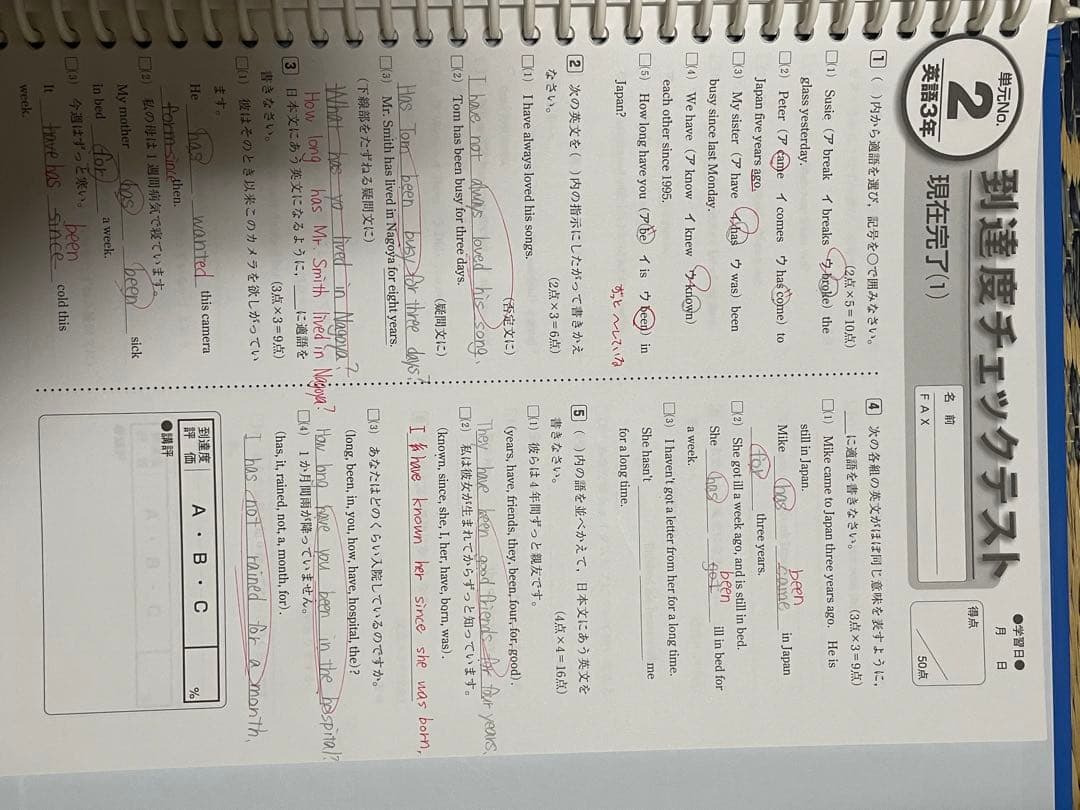 単元No.
2
英語3年
到達度チェックテスト
現在完了(1)
名 前
FAX
●学習日●
月 日
得点
50点
1 ( )内から適語を選び，記号を○で囲みなさい。
(2点×5=10点)
□(1) Susie (ア break イ breaks ウ broke) the
glass yesterday.
□(2) Peter (ア came イ comes ウ has come) to
Japan five years ago.
□(3) My sister (ア have イ has ウ was) been
busy since last Monday.
□(4) We have (ア know イ knew ウ known)
each other since 1995.
□(5) How long have you (ア be イ is ウ been) in
Japan?
ずっと〜している
2 次の英文を( )内の指示にしたがって書きかえ
なさい。 (2点×3=6点)
□(1) I have always loved his songs.
(否定文に)
I have not always loved his song.
□(2) Tom has been busy for three days.
(疑問文に)
Has Tom been busy for three days?
□(3) Mr. Smith has lived in Nagoya for eight years.
(下線部をたずねる疑問文に)
What has yo lived in Nagoya?
How long has Mr. Smith lived in Nagoya?
3 日本文にあう英文になるように，＿に適語を
書きなさい。 (3点×3=9点)
□(1) 彼はそのとき以来このカメラを欲しがってい
ます。
He has wanted this camera
since then.
□(2) 私の母は1週間病気で寝ています。
My mother has been sick
in bed for a week.
□(3) 今週はずっと寒い。
been
It have has since cold this
week.
4 次の各組の英文がほぼ同じ意味を表すように，
＿に適語を書きなさい。 (3点×3=9点)
□(1) Mike came to Japan three years ago. He is
still in Japan.
been
Mike has came in Japan
for three years.
□(2) She got ill a week ago, and is still in bed.
been
She has got ill in bed for
a week.
□(3) I haven't got a letter from her for a long time.
She hasn't me
for a long time.
5 ( )内の語を並べかえて，日本文にあう英文を
書きなさい。 (4点×4=16点)
□(1) 彼らは4年間ずっと親友です。
(years, have, friends, they, been, four, for, good).
They have been good friends for four years.
□(2) 私は彼女が生まれてからずっと知っています。
(known, since, she, I, her, have, born, was).
I have known her since she was born.
□(3) あなたはどのくらい入院しているのですか。
(long, been, in, you, how, have, hospital, the)?
How long have you been in the hospital?
□(4) 1か月間雨が降っていません。
(has, it, rained, not, a, month, for).
I has not rained for a month.
到達度
評 価
A・B・C
%
●講評